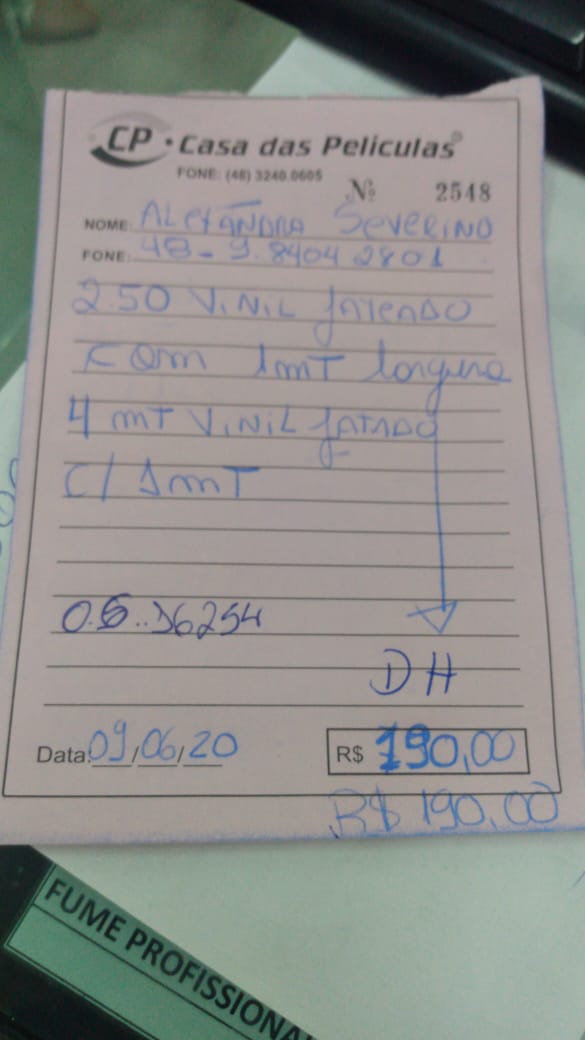 CP · Casa das Películas®
FONE: (48) 3240.0605
Nº 2548
NOME: ALEXANDRA SEVERINO
FONE: 48-9.8404 2801
2.50 VINIL JATEADO
COM 1mT largura
4 mT VINIL JATEADO
C/ 1mT
O.S..16254
DH
Data: 09/06/20 R$ 190,00
R$ 190,00
FUME PROFISSIONA